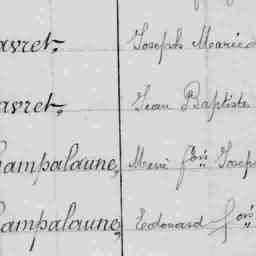 avret, Joseph Marie
avret, Jean Baptiste
hampalaune, Marie fçois Josep
hampalaune, Edouard fçois